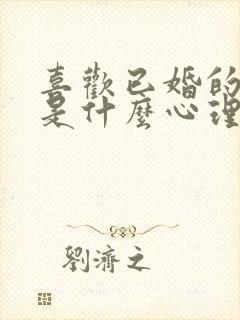 喜歡已婚的
是什麼心理
劉濟之